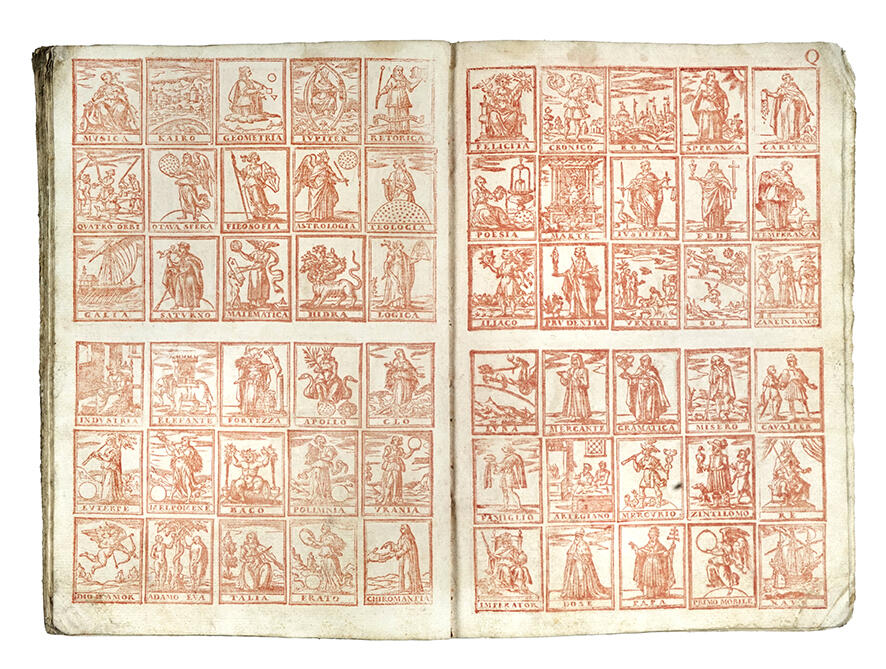 Q
MVSICA KAIRO GEOMETRIA IVPITER RETORICA
QVATRO ORBI OTAVA SFERA FILOSOFIA ASTROLOGIA TEOLOGIA
GALIA SATVRNO MATEMATICA HIDRA LOGICA
INDVSTRIA ELEFANTE FORTEZZA APOLLO CLO
EVTERPE MELPOMENE BACO POLIMNIA VRANIA
DIO D'AMOR ADAMO EVA TALIA ERATO CHIROMANTIA
FELICITA CRONICO ROMA SPERANZA CARITA
POESIA MARTE IVSTITIA FEDE TEMPERANZA
ILIACO PRVDENTIA VENERE SOL ZANE IN BANCO
LVNA MERCANTE GRAMATICA MISERO CAVALIER
FAMEGLIO ARTEGIANO MERCVRIO ZINTILOMO RE
IMPERATOR DOSE PAPA PRIMO MOBILE NAVE